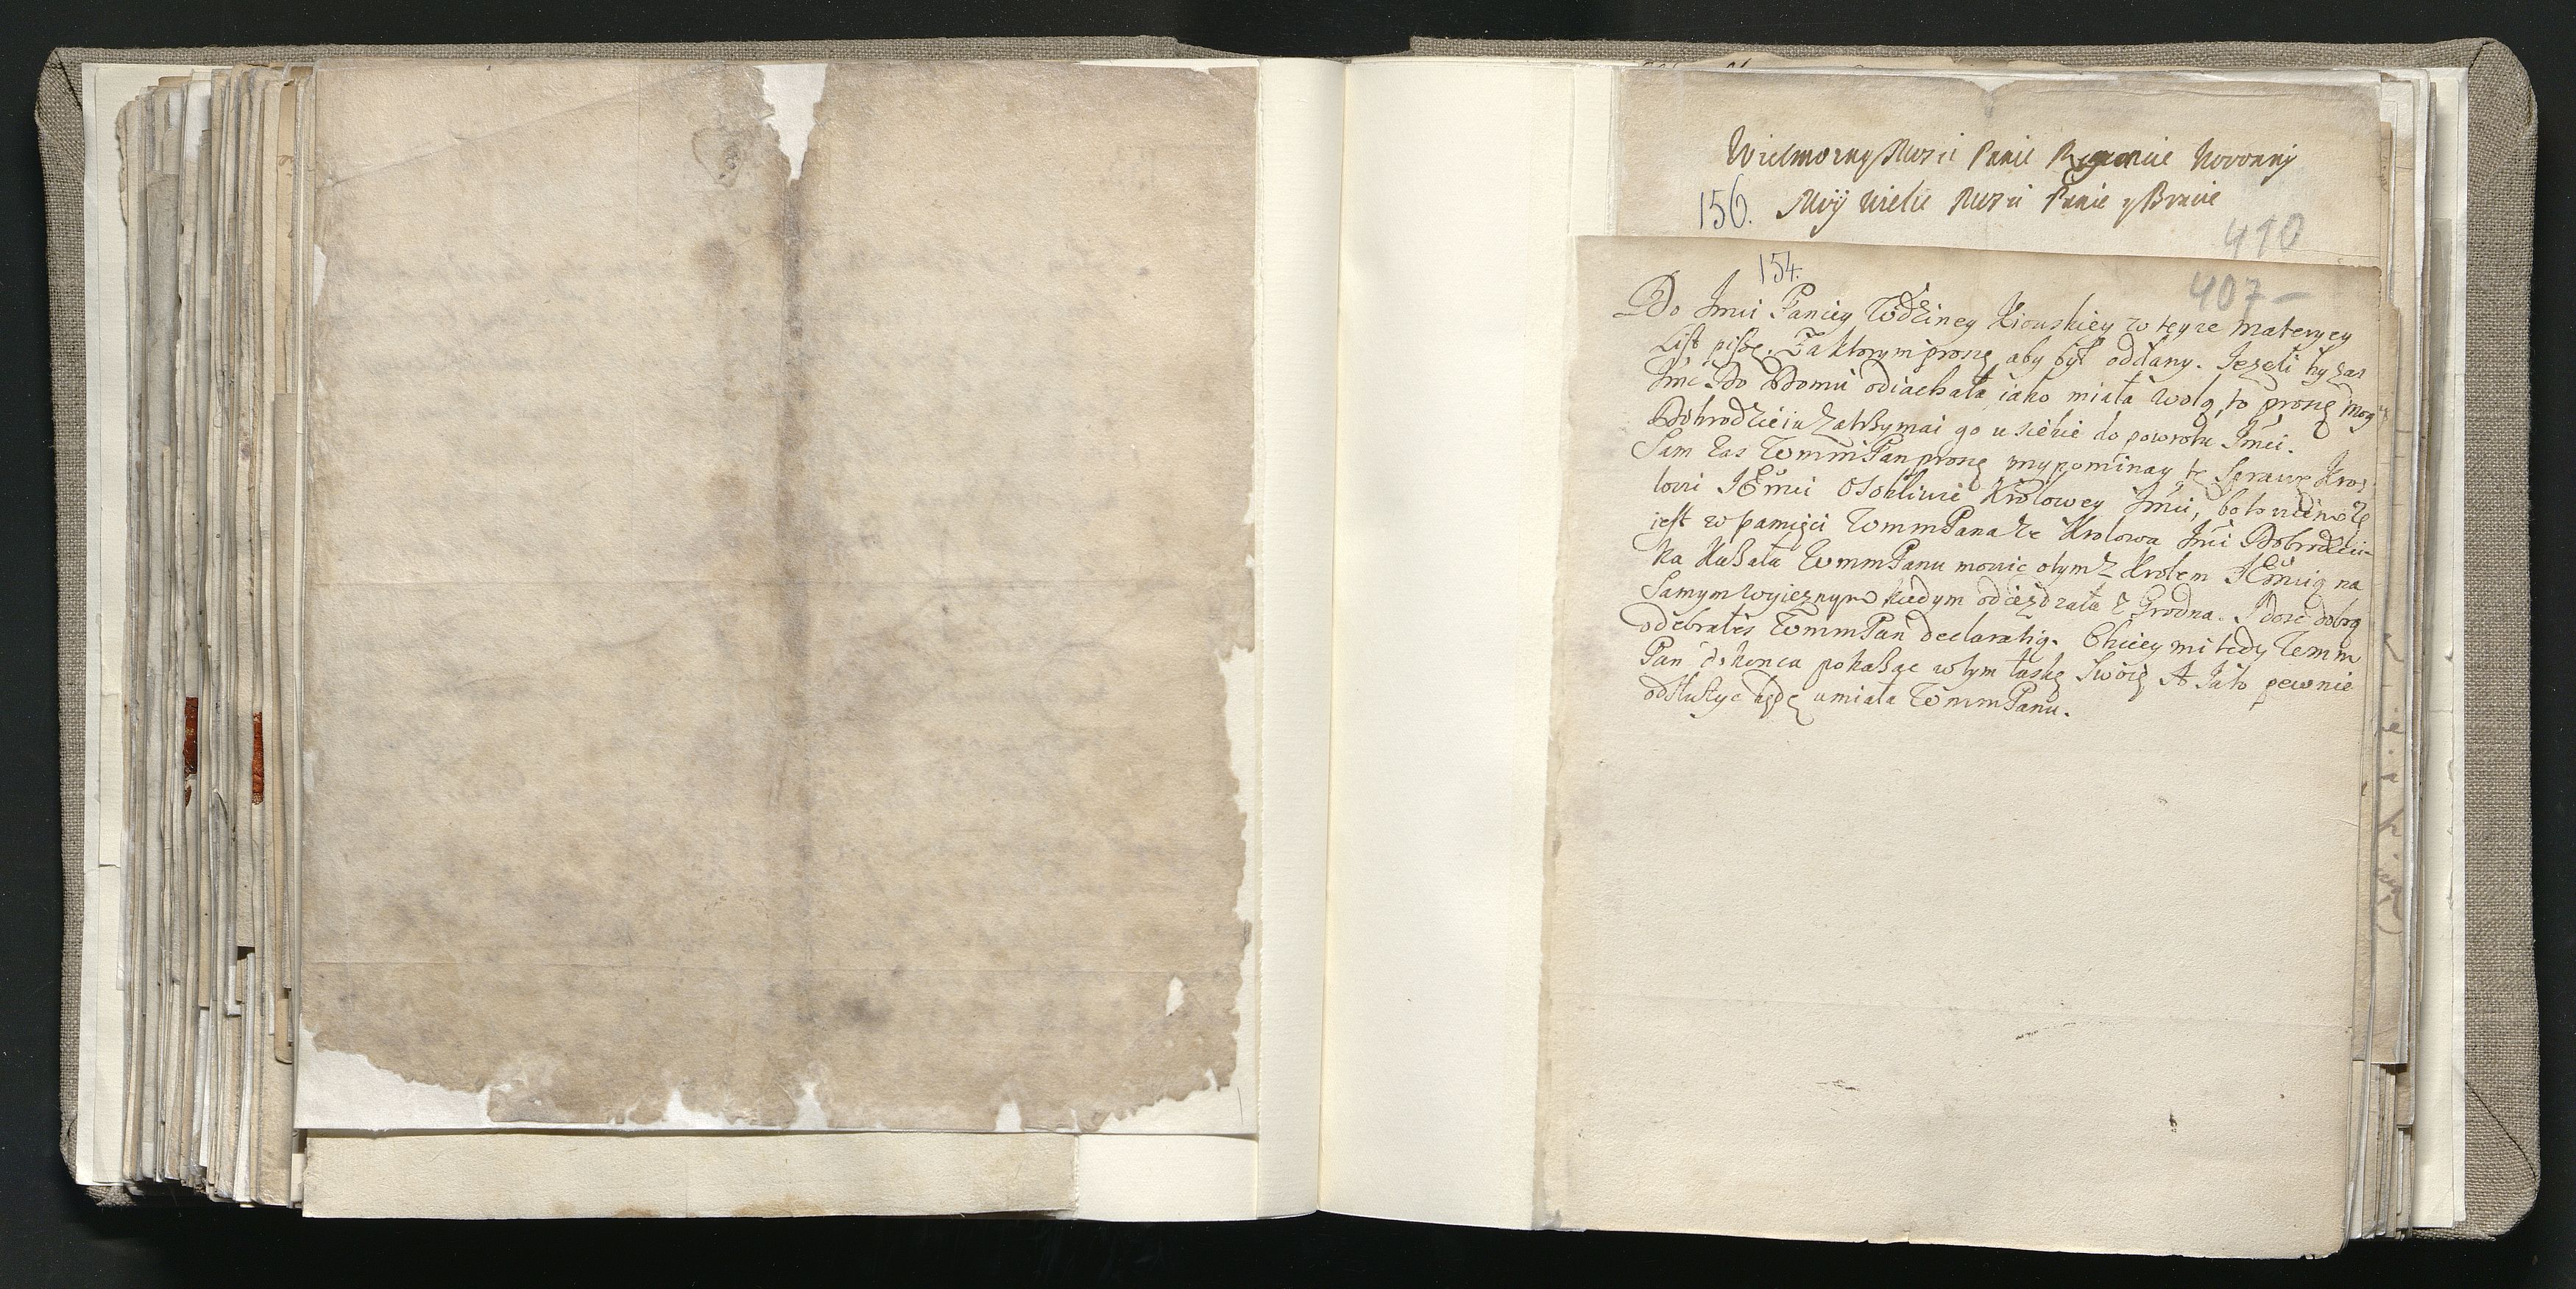 Wielmozny Mości Panie Regencie Koronny
156. Mój wielce Mości Panie y Bracie
410
154.
407 –
Do Jmći Paniey Wdźiney Kiouskiey w teyze materyey
List piszę. Za ktorym proszę aby był oddany. Jezeli by zas
Jmć do Domu odiachała iako miała wolą, to proszę mog
Dobrodzieiu zatrzymai go u siebie do powrotu Jmći.
Sam zas WmmPan proszę przypominay tę Sprawę Kro
lowi JEmći osobliwie Krolowey Jmći, bo to
jest w pamięci WmmPana ze Krolowa Jmći Dobrodziei
ka kazała WmmPanu mowic o tym z Krolem JEmcią na
samym wyieznym kiedym odiezdzała z Grodna. I dosc dobrą
odebrałes WmmPan declaratią. Chciey mi tedy Wmm
Pan do konca pokazac w tym łaskę Swoię, A Ja to pewnie
odsłużyc będę umiała WmmPanu.